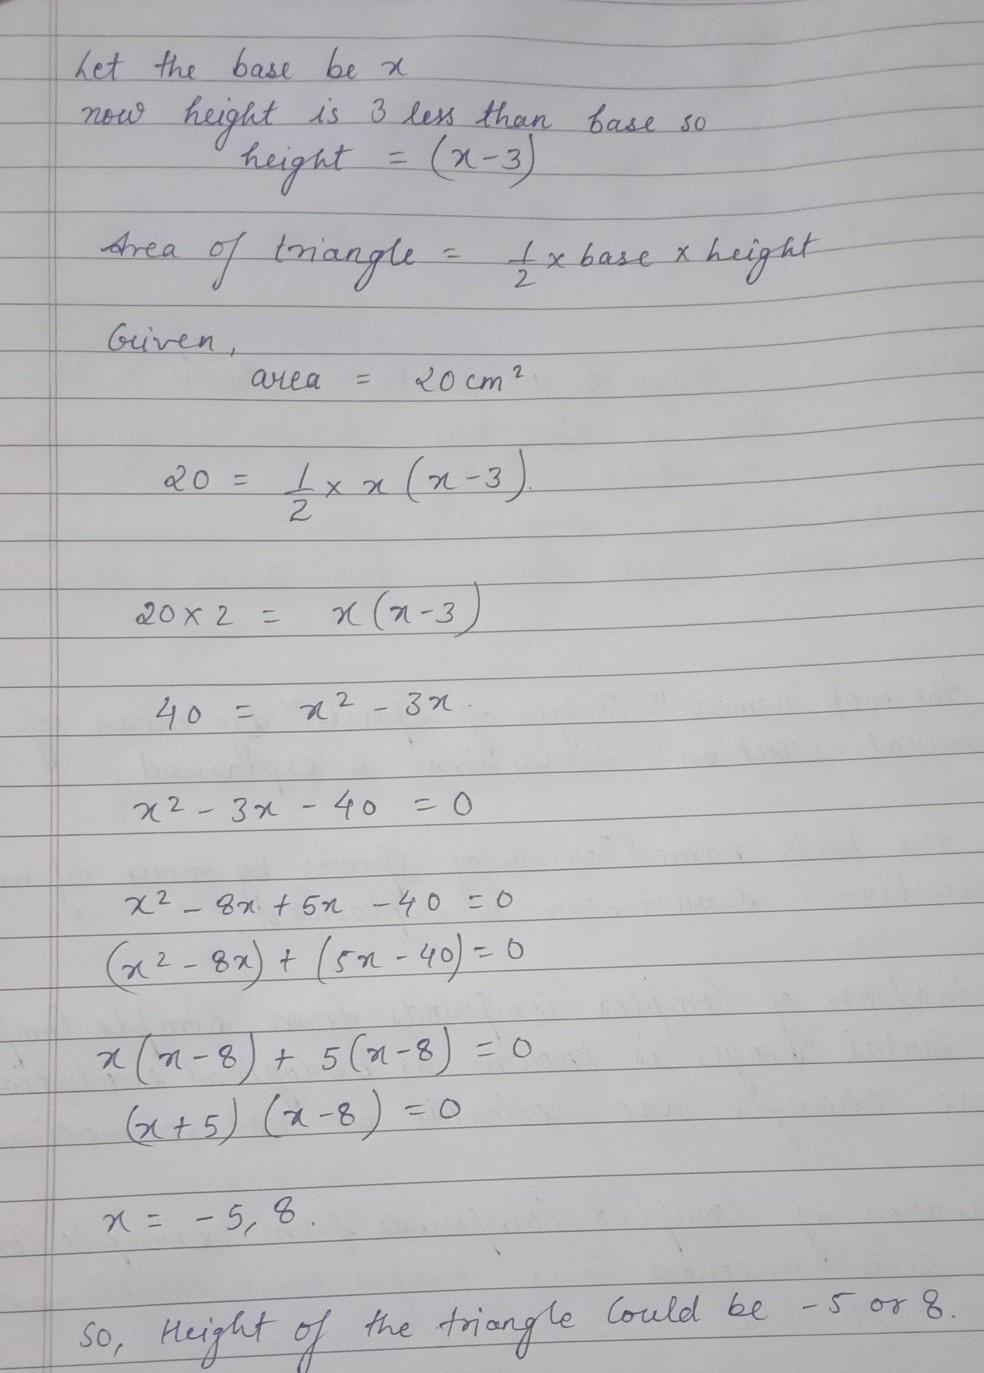 Let the base be x
now height is 3 less than base so
height = (x-3)
Area of triangle = 1/2 x base x height
Given,
area = 20 cm².
20 = 1/2 × x (x-3).
20 × 2 = x(x-3)
40 = x² - 3x.
x² - 3x - 40 = 0
x² - 8x + 5x - 40 = 0
(x² - 8x) + (5x - 40) = 0
x(x-8) + 5(x-8) = 0
(x+5) (x-8) = 0
x = -5, 8.
So, Height of the triangle Could be -5 or 8.